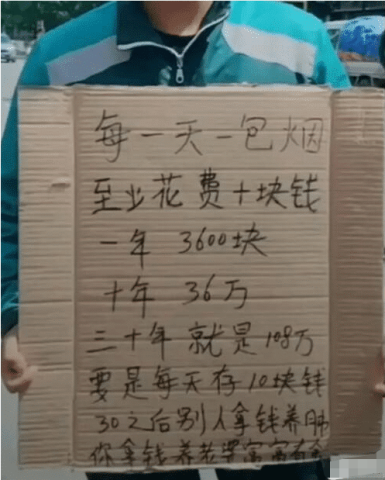 每一天一包烟
至少花费十块钱
一年 3600块
十年 36万
三十年 就是108万
要是每天存10块钱
30之后别人拿钱养肺
你拿钱养老